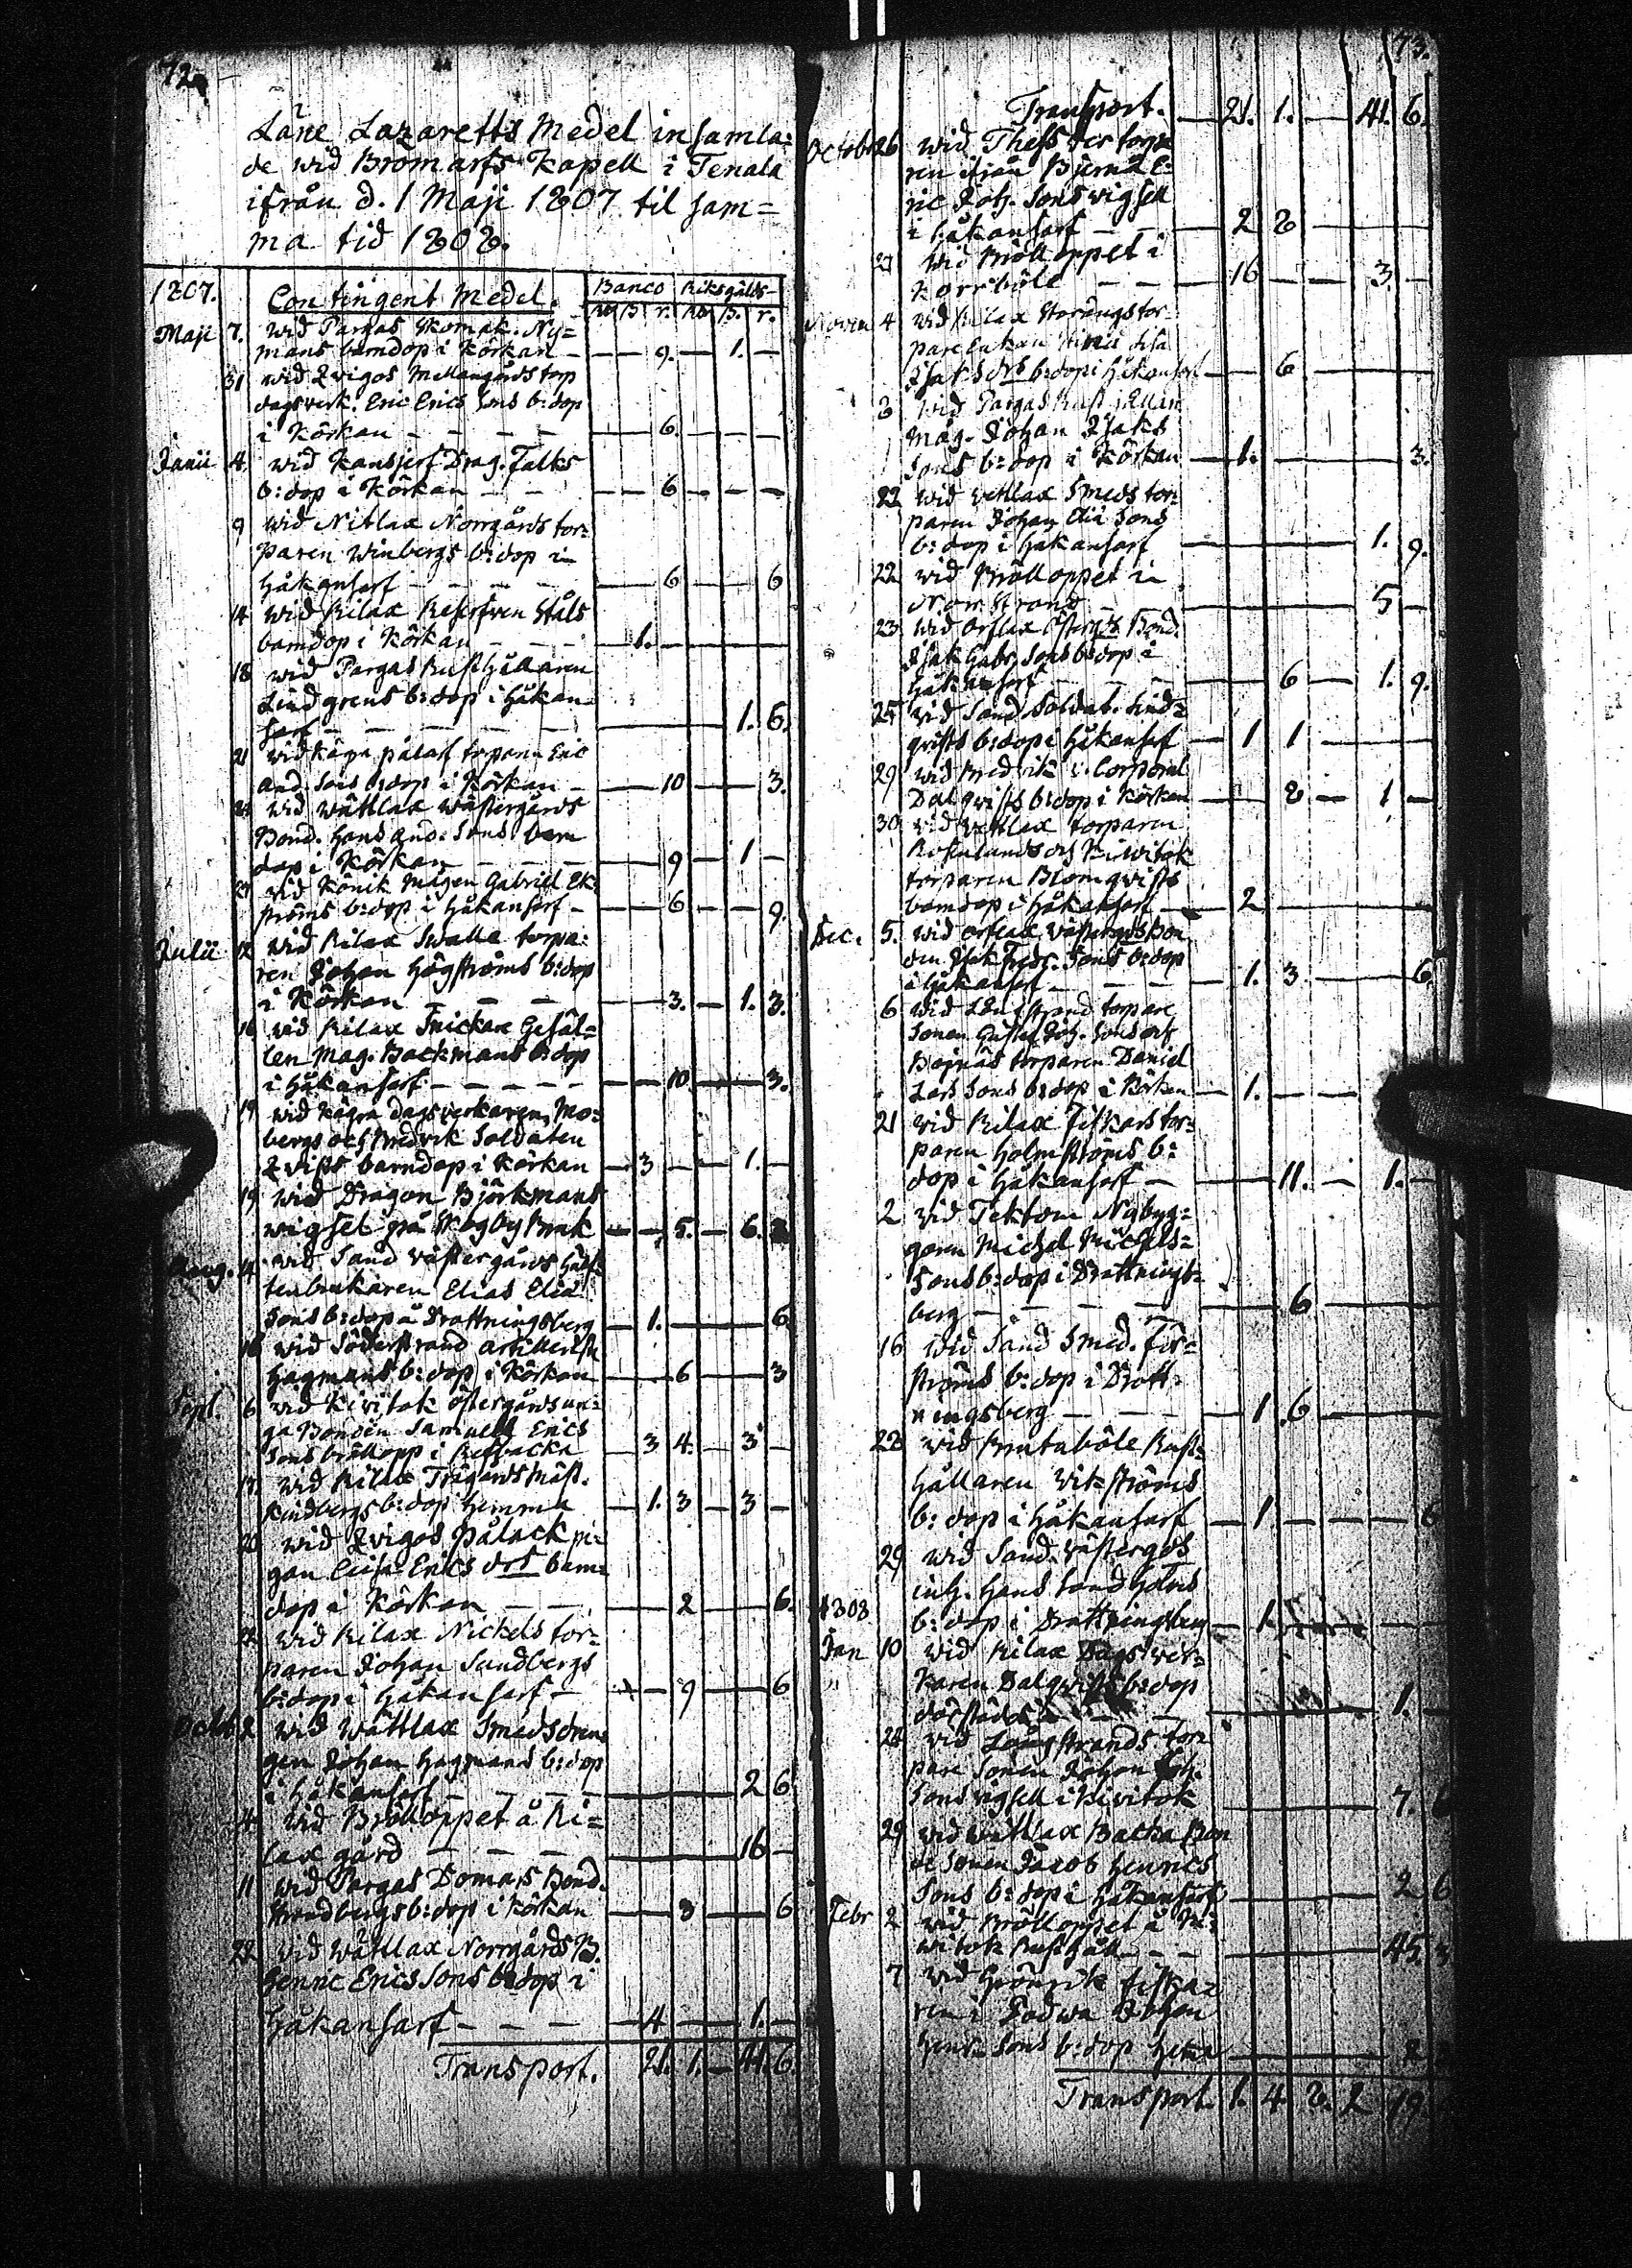 72.
Läne Lazaretts Medel insamla=
de wid Bromarfs Kapell i Tenala
ifrån d. 1 Maji 1807 til sam=
ma tid 1808.
1807. Contingent Medel. Banco Riksgälds
Rd ß r. Rd ß. r.
Maji 7. wid Pargas Skomak. Ny=
mans barndop i Körkan — — 9. — 1. —
31 wid Zwigos Mellangårds torp
dagsverk. Eric Erics Sons b:dop
i Körkan — — 6. — — —
Junii 4. wid Kansjerf Drag. Falks
b:dop i Körkan — — 6 — — —
9 wid Nitlax Norrgårds tor=
paren Winbergs b:dop i
Håkansarf — — 6 — — 6
14 wid Rilax Ståls
barndop i Körkan — 1. — — — —
18 wid Pargas Rusthållaren
Lindgrens b:dop i Håkan=
sarf — — — — 1. 6.
21 wid torparen Eric
And. Sons b:dop i Körkan — — 10 — — 3.
wid Wättlax Wästergårds
Bond. Hans And. Sons barn
dop i Körkan — — 9 — 1 —
27 wid Könik Mågen Gabriel Ek
ströms b:dop i Håkansarf — — 6 — — 9.
Julii 12 wid Rilax Swalle torpa=
ren Johan Högströms b:dop
i Körkan — — 3. — 1. 3.
16 wid Rilax Snickare Gesäl=
len Mag. Backmans b:dop
i Håkansarf — — 10. — — 3.
19 wid dagsverkaren Mo=
bergs och Bredvik Soldaten
Qvists barndop i Körkan — 3 — — 1. —
19 wid Dragon Björkmans
wigsel på Skogby Bruk — — 5. — 6.
Aug. wid Sand Wästergårds Hälf=
tenbrukaren Elias Elia
Sons b:dop å Drottningsberg — 1. — — — 6
16 wid Söderstrand
Hagmans b:dop i Körkan — — 6 — — 3
Sept. 6 wid Kivitok Östergårds un=
ga Bonden Samuel Erics
Sons bröllopp i Refbacka — 3 4. — 3 —
17. wid Rilax Trägårds Mäst.
Lindbergs b:dop hemma — 1. 3 — 3 —
20 wid Zvigos Pålack pi=
gan Lisa Erics dr barn=
dop i Körkan — — 2 — — 6.
22 wid Rilax Nickels tor=
paren Johan Sundbergs
b:dop i Håkansarf — — 9 — — 6
Octob. 2 wid Wättlax Smedsdren=
gen Johan Hagmans b:dop
i Håkansarf — — — — 2 6
4. wid Bröllopet å Ri=
lax gård — — — — 16 —
11 wid Pargas Domars Bond.
Strandbergs b:dop i Körkan — — 3 — — 6
22 wid Wättlax Norrgårds B.
Henric Erics Sons b:dop i
Håkansarf — 4 — — 1. —
Transport. 21. 1. — 41. 6.
73.
Transport. — 21. 1. — 41. 6.
Octobr 26 wid torpa
ren ifrån Bjerno E=
ric Joh. Sons wigsell
i Håkansarf — 2 8
27 wid Bröllopet i
Korrböle — 16 — — 3. —
Novem 4 wid Rilax Storängs tor=
pare Enkan
Isaks drs b:dop i Håkansarf — — 6 — — —
8 wid Pargas
Måg. Johan Isaks
Sons b:dop i Körkan — 1. — — — 3.
22 wid Wettlax Smeds tor=
paren Johan Elia Sons
b:dop i Håkansarf — — — — 1. 9.
22 wid Bröllopet i
Norr Strand — — — — 5 —
23 wid Orslax Österg:s Bond.
Isak Gabr. Sons b:dop i
Håkansarf — — 6 — 1. 9.
25 wid Sand Soldat. Lind=
qvists b:dop i Håkansarf — 1 1 — — —
29 wid Bredvik v. Corporal
Dalqvists b:dop i Körkan — — 8 — 1 —
30 wid Wettlax torparen
Rosenlunds och Kivitok
torparen Blomqvists
barndop i Håkansarf — 2 — — — —
Dec. 5. wid Orslax Wästergårds Bon
den Isak Fredr. Sons b:dop
i Håkansarf — 1. 3. — — 6.
6 wid Långstrand torpare
Sonen Gustaf Joh. Sons och
Bojnäs torparen Daniel
Lars Sons b:dop i Körkan — 1. — — —
21 wid Rilax Fiskars tor=
paren Holmströms b:
dop i Håkansarf — — 11. — 1. —
2 wid Tektom Nybyg=
garen Michel Michels=
Sons b:dop i Drottnings=
berg — — 6 — — —
16 wid Sand Smed. För=
ströms b:dop i Drott=
ningsberg — 1 6 — — —
28 wid Brutuböle Rust=
hållaren Wikströms
b:dop i Håkansarf — 1 — — — 6
29 wid Sand Wästergårds
inh. Hans Sandholms
b:dop i Drottningsberg — 1
1808
Jan 10 wid Rilax Dagsver=
karen Dalqvists b:dop
därstädes — — — — 1. —
24 wid Långstrands tor=
pare Sonen Johan Joh.
Sons wigsell i Kivitok — — — — 7.
29 wid Wättlax Backa Bon
de Sonen Jacob Henrics
Sons b:dop i Håkansarf — — — — 2 6
Febr 2 wid Bröllopet å Ki=
witok Rusthåll — — — — 45. 3
7 wid Grönvik fiska=
ren i Padwa Johan
Henr. Sons b:dop hema — — — — 2
Transport. 1. 4. 8. 2 19.